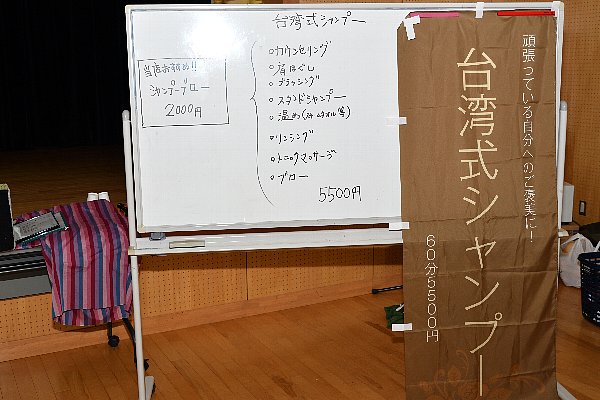 台湾式シャンプー
当店おすすめ!!
シャンプーブロー
2000円
○カウンセリング
○肩ほぐし
○ブラッシング
○スタンドシャンプー
○温め(ネックタオル等)
○リンシング
○トニックマッサージ
○ブロー
5500円
頑張っている自分へのご褒美に!
台湾式シャンプー
60分5500円